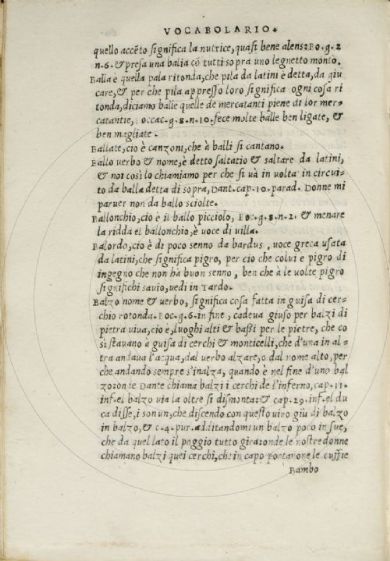 VOCABOLARIO.
quello accēto significa la nutrice, quasi bene alens: Bo.g.2
n.6. & presa una balia cō tutti sopra uno legnetto monto.
Balla e quella pala ritonda, che pila da latini è detta, da giu
care, & per che pila appresso loro significa ogni cosa ri
tonda, diciamo balle quelle de mercatanti piene di lor mer-
catantie, Boccac.g.8.n.10. fece molte balle ben ligate, &
ben magliate.
Ballate, cio è canzoni, che à balli si cantano.
Ballo uerbo & nome, è detto saltatio & saltare da latini,
& noi così lo chiamiamo per che si uà in volta in circui-
to da balla detta di sopra, Dant.cap.10.parad. Donne mi
paruer non da ballo sciolte.
Ballonchio, cio è il ballo picciolo, Bo.g.8.n.2. & menare
la ridda el ballonchio, è uoce di uilla.
Balordo, cio è di poco senno da bardus, uoce greca usata
da latini, che significa pigro, per cio che colui e pigro di
ingegno che non hà buon senno, ben che à le uolte pigro
significhi sauio, uedi in Tardo.
Balzo nome & uerbo, significa cosa fatta in guisa di cer-
chio rotonda. Boc.g.6. in fine, cadeua giuso per balzi di
pietra uiua, cio è, luoghi alti & bassi per le pietre, che co
sì stauano à guisa di cerchi & monticelli, che d'una in al
tra andaua l'acqua, dal uerbo alzare, o dal nome alto, per
che andando sempre s'inalza, quando è nel fine d'uno bal
zo: onde Dante chiama balzi i cerchi de l'inferno, cap.11.
inf. el balzo uia la oltre si dismonta: & cap.29.inf. el du
ca disse, i son un, che discendo con questo uiuo giu di balzo
in balzo, & c.4.pur. additandomi un balzo poco in sue,
che da quel lato il poggio tutto gira: onde le nostre donne
chiamano balzi quei cerchi, che in capo portano ne le cuffie
Bambo